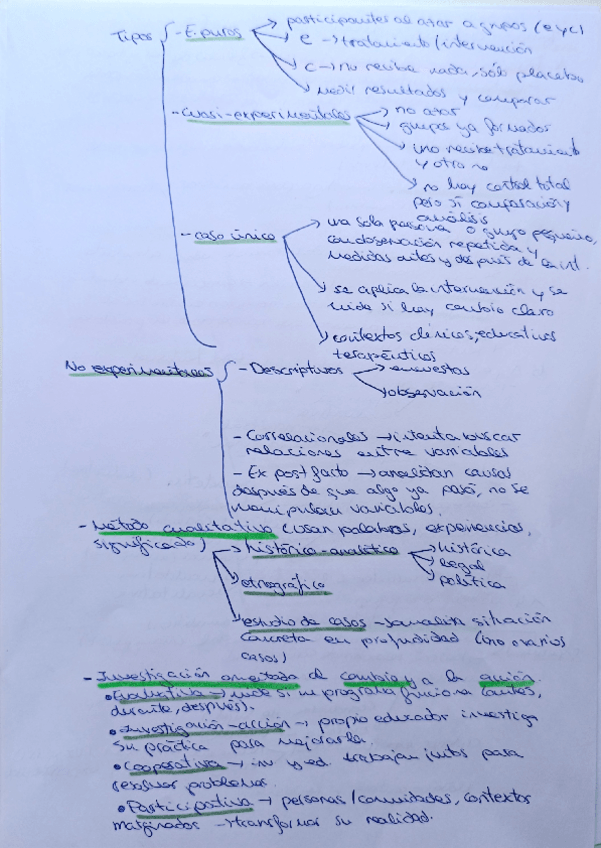 Tipos
- E. puros → participantes al azar a grupos (e y c)
→ e → tratamiento/intervención
→ c → no recibe nada, sólo placebo
→ medir resultados y comparar
- Cuasi-experimentales → no azar
→ grupos ya formados
→ uno recibe tratamiento
y otro no
→ no hay control total
pero sí comparación y
análisis
- caso único → una sola persona o grupo pequeño,
con observación repetida y
medidas antes y después de la int.
→ se aplica la intervención y se
mide si hay cambio claro
→ contextos clínicos, educativos
terapéuticos
No experimentales
- Descriptivos → encuestas
→ observación
- Correlacionales → intenta buscar
relaciones entre variables
- Ex post facto → analizan causas
después de que algo ya pasó, no se
manipulan variables.
- Método cualitativo (usan palabras, experiencias,
significado)
→ histórico-analítico → histórica
→ legal
→ política
→ etnográfico
→ estudio de casos → analiza situación
concreta en profundidad (uno o varios
casos)
- Investigación orientada al cambio y a la acción
• Evaluativa → mide si un programa funciona (antes,
durante, después).
• Investigación-acción → propio educador investiga
su práctica para mejorarla.
• Cooperativa → inv. y ed. trabajan juntos para
resolver problemas.
• Participativa → personas/comunidades, contextos
marginados → transformar su realidad.